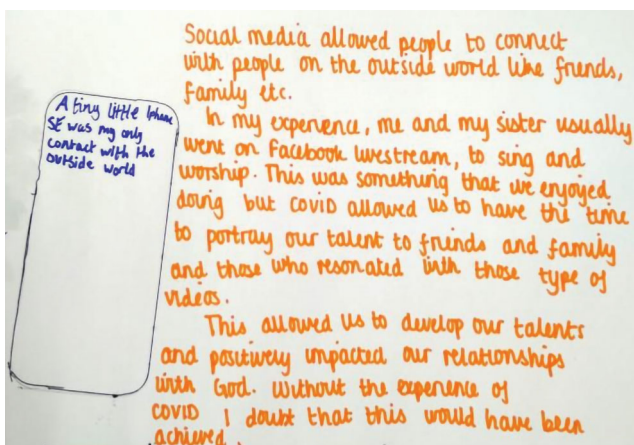 A tiny little Iphone
SE was my only
contact with the
outside world
Social media allowed people to connect
with people on the outside world like friends,
family etc.
In my experience, me and my sister usually
went on Facebook livestream, to sing and
worship. This was something that we enjoyed
doing but COVID allowed us to have the time
to portray our talent to friends and family
and those who resonated with those type of
videos.
This allowed us to develop our talents
and positively impacted our relationships
with God. Without the experience of
COVID I doubt that this would have been
achieved.